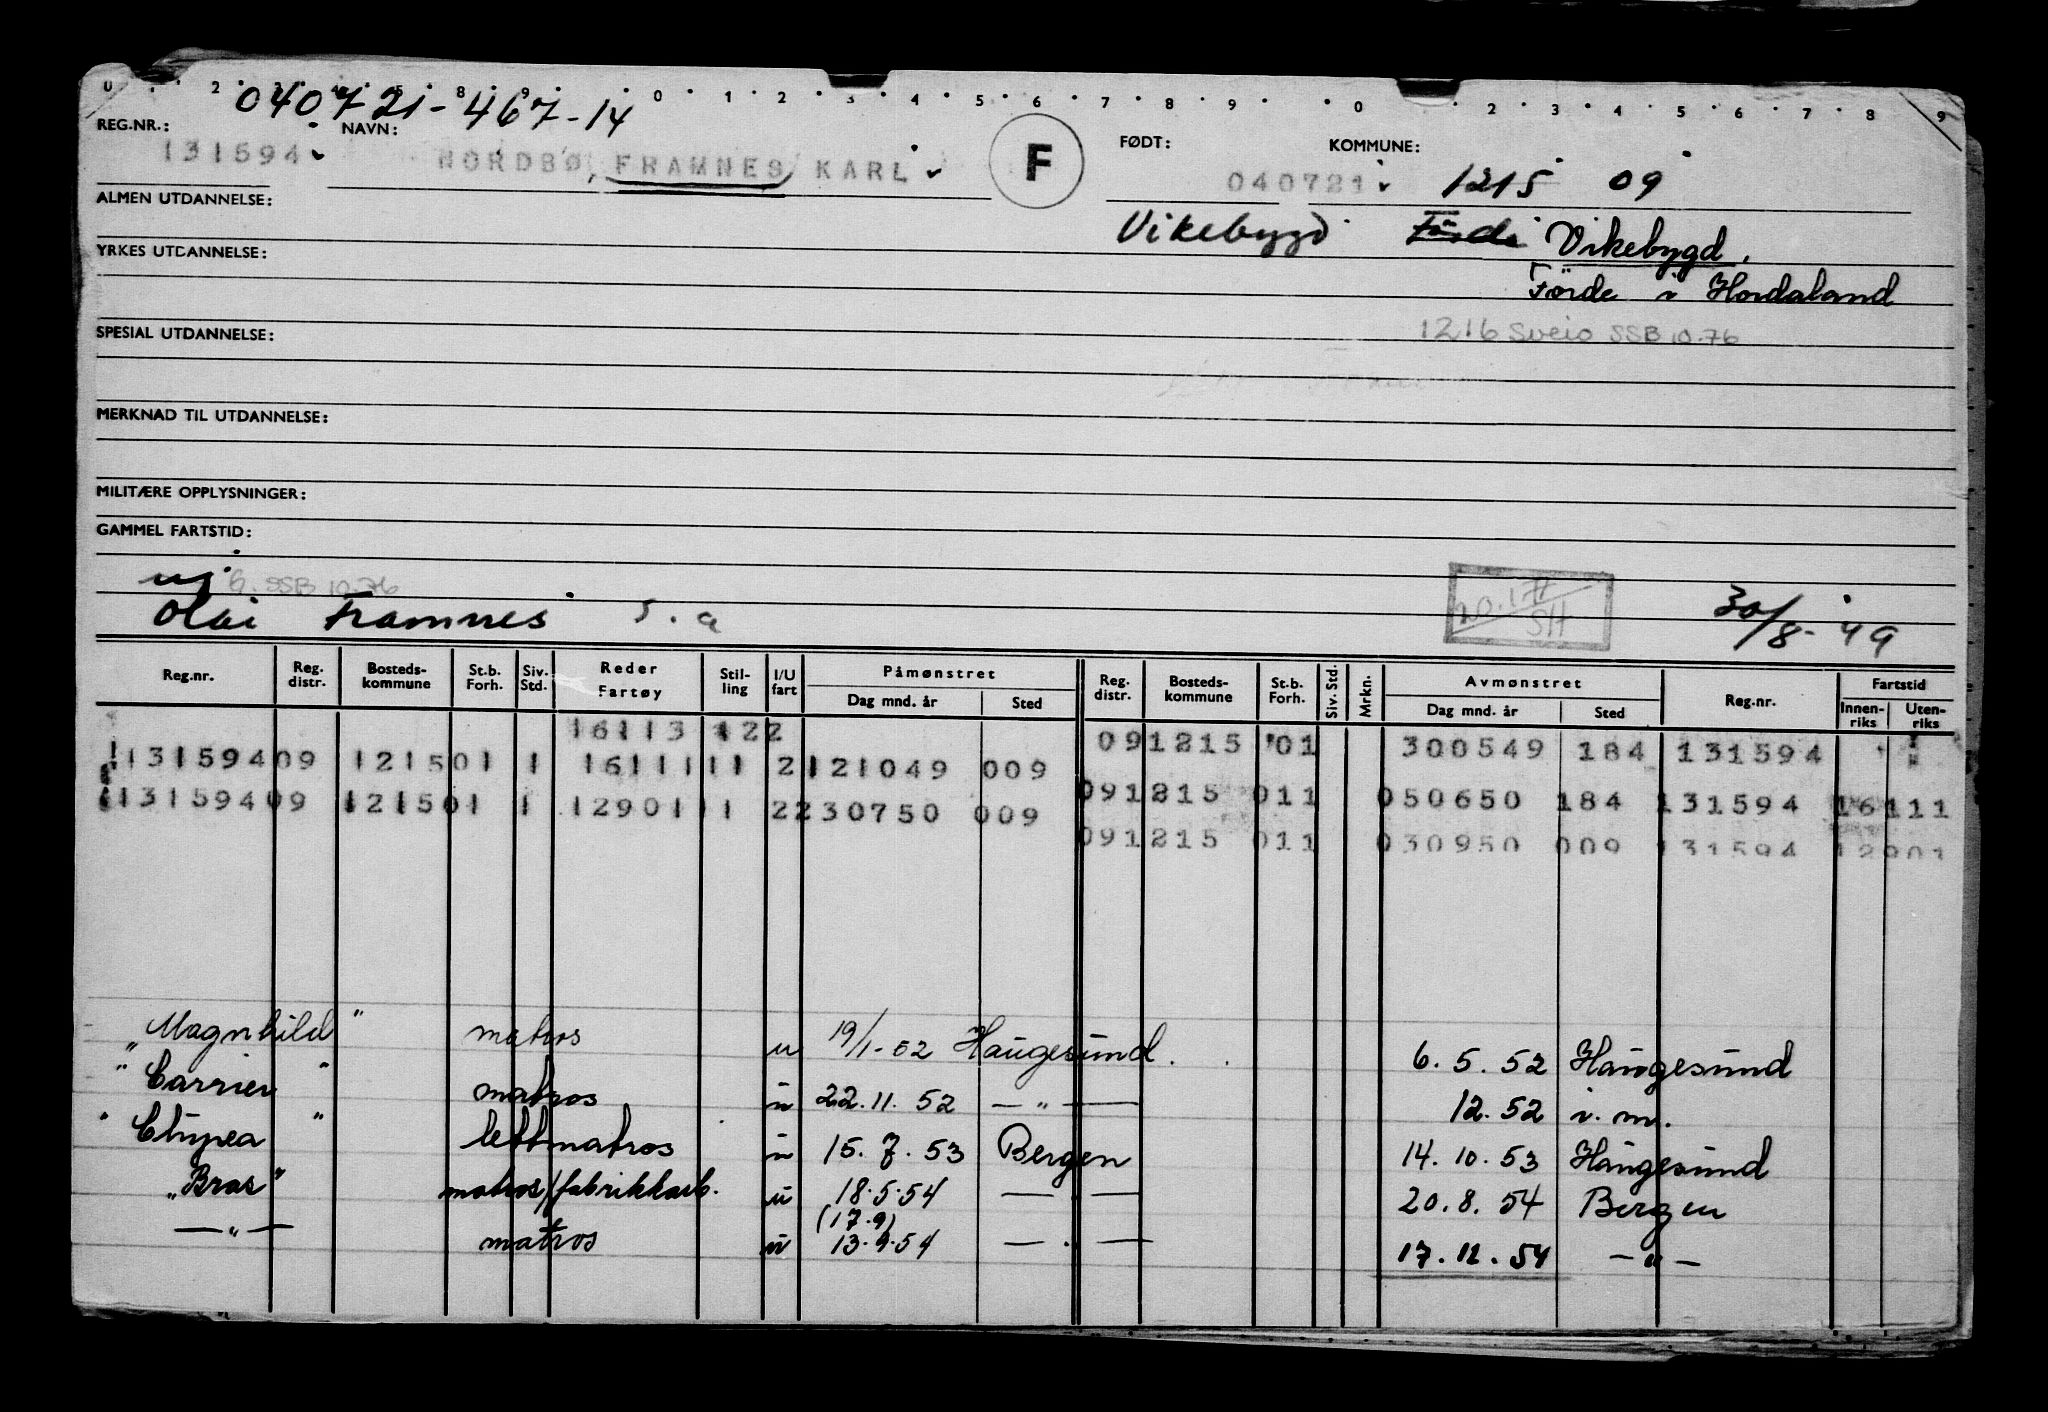 040721-467-14
REG.NR.: NAVN: FØDT: KOMMUNE:
131594 NORDBØ, FRAMNES KARL F 040721 1215 09
ALMEN UTDANNELSE:
Vikebygd Förde Vikebygd.
YRKES UTDANNELSE:
Förde i Hordaland
SPESIAL UTDANNELSE: 1216 Sveio SSB 10.76
MERKNAD TIL UTDANNELSE:
MILITÆRE OPPLYSNINGER:
GAMMEL FARTSTID:
6. SSB 10.76
Olai Framnes s. a 30/8-49
Reg.nr. Reg. distr. Bosteds-kommune St.b. Forh. Siv. Std. Reder Fartøy Stil-ling I/U fart Påmønstret Dag mnd. år Sted Reg. distr. Bosteds-kommune St.b. Forh. Siv. Std. Mrkn. Avmønstret Dag mnd. år Sted Reg.nr. Fartstid Innen-riks Uten-riks
16113 122 091215 01 300549 184 131594
13159409 121501 1 1611111 2121049 009
091215 011 050650 184 131594 16111
13159409 121501 1 129011 1 2230750 009
091215 011 030950 009 131594 12901
"Magnhild" matros u 19/1-52 Haugesund. 6.5.52 Haugesund
"Carrier" matros u 22.11.52 — " — 12.52 i.m.
"Clupea" lettmatros u 15.7.53 Bergen 14.10.53 Haugesund
"Bras" matros/fabrikkarb. u 18.5.54 — — 20.8.54 Bergen
(17.9)
— " — matros u 13.9.54 — . — 17.12.54 — " —